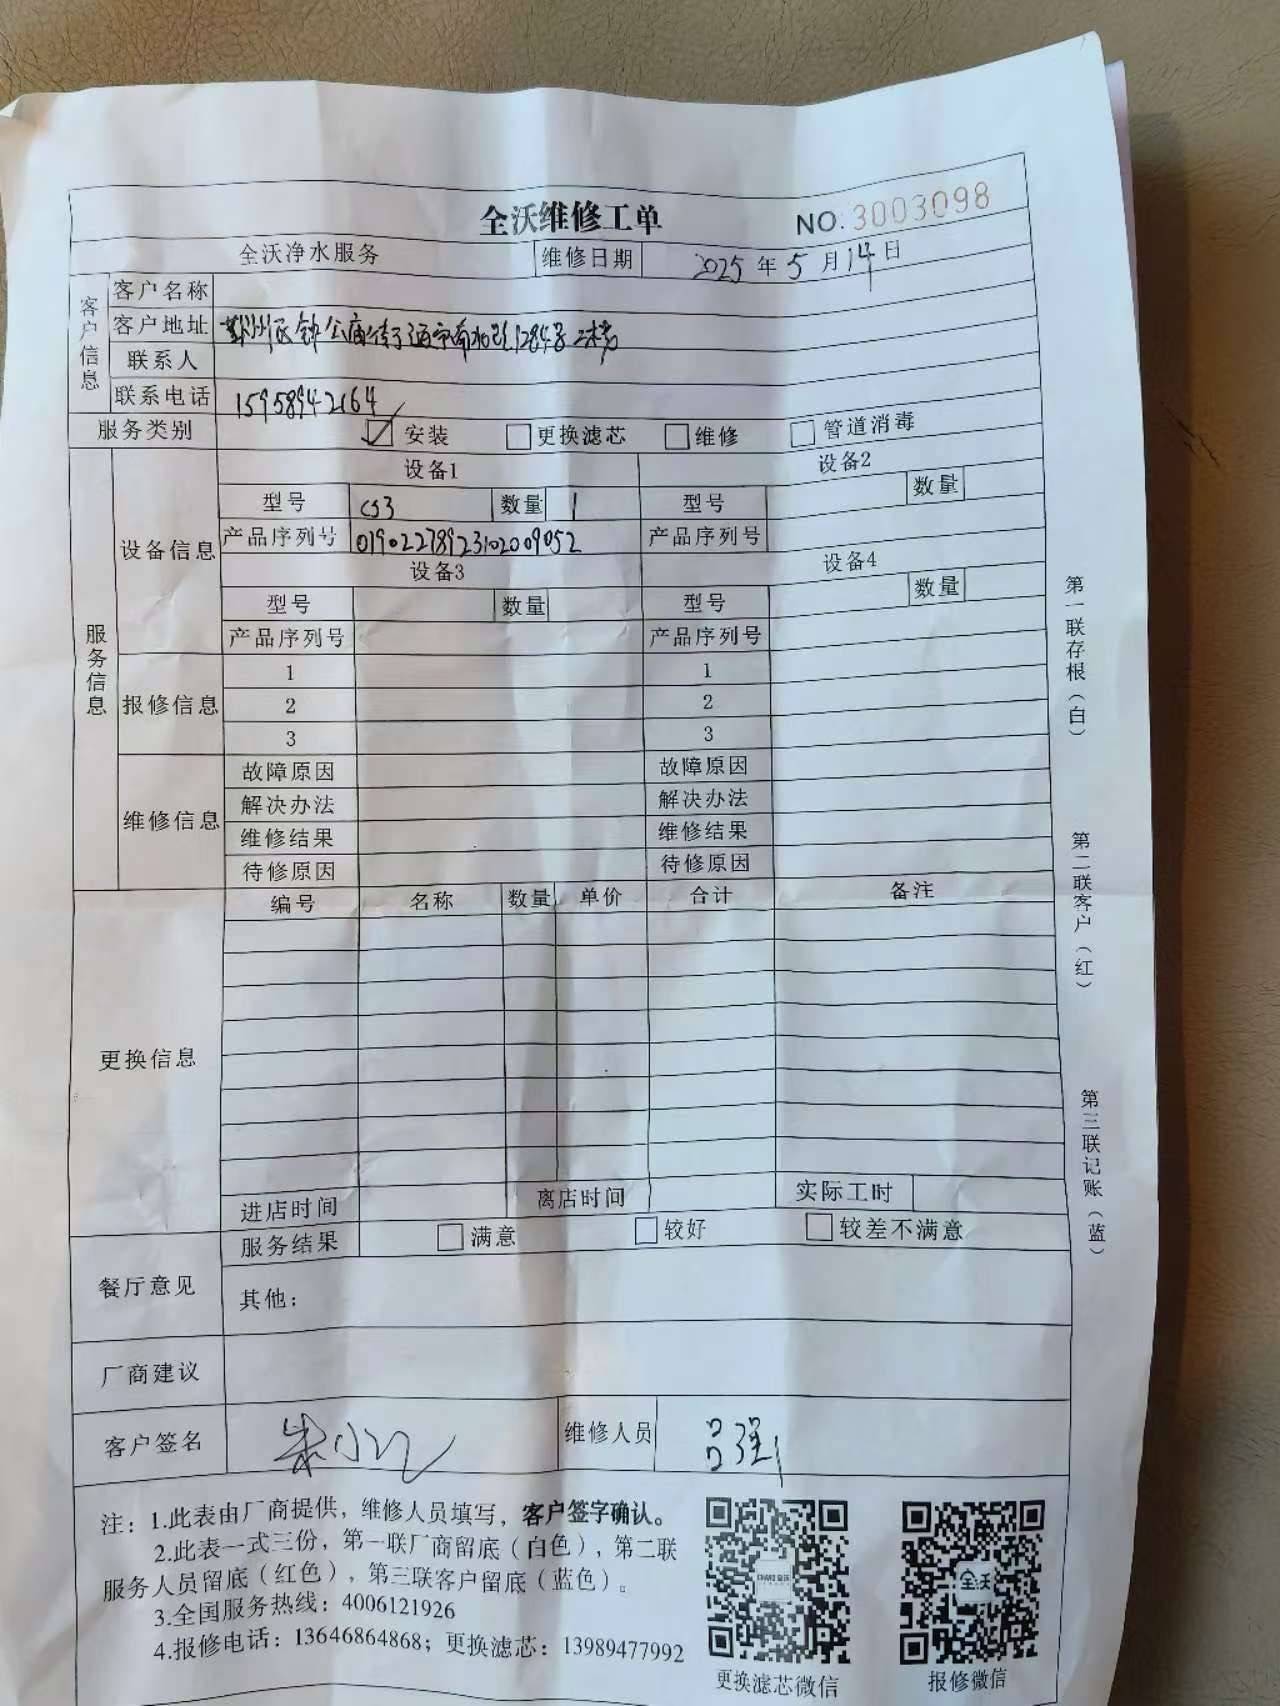 全沃维修工单 NO.3003098
全沃净水服务 维修日期 2025年5月14日
客户信息
客户名称
客户地址 鄞州区钟公庙街道 1284号
联系人
联系电话 15958942164
服务类别 安装 更换滤芯 维修 管道消毒
服务信息
设备信息
设备1 设备2
型号 CS3 数量 1 型号 数量
产品序列号 01902278923102009052 产品序列号
设备3 设备4
型号 数量 型号 数量
产品序列号 产品序列号
报修信息
1 1
2 2
3 3
维修信息
故障原因 故障原因
解决办法 解决办法
维修结果 维修结果
待修原因 待修原因
更换信息
编号 名称 数量 单价 合计 备注
进店时间 离店时间 实际工时
服务结果 满意 较好 较差不满意
餐厅意见 其他：
厂商建议
客户签名 朱小 维修人员 吕强
注：1.此表由厂商提供，维修人员填写，客户签字确认。
2.此表一式三份，第一联厂商留底（白色），第二联
服务人员留底（红色），第三联客户留底（蓝色）。
3.全国服务热线：4006121926
4.报修电话：13646864868；更换滤芯：13989477992
全沃
更换滤芯微信 报修微信
第一联存根（白）
第二联客户（红）
第三联记账（蓝）